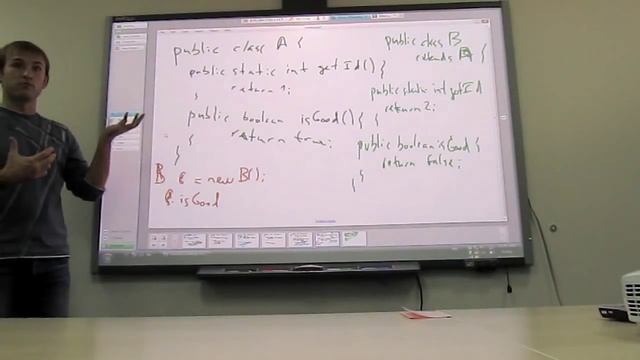 public class A {
public static int getId() {
return 1;
}
public boolean isGood() {
return true;
}
}
B e = new B();
e.isGood
public class B
extends {
public static int getId
{ return 2;
}
public boolean isGood {
return false;
}
}